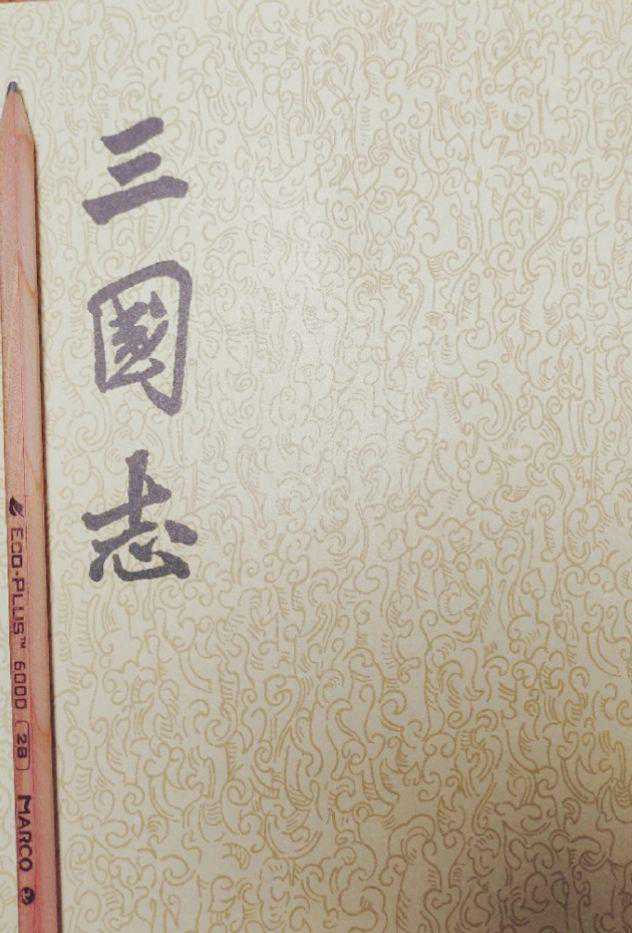 三國志
ECO-PLUS™ 6000 2B MARCO